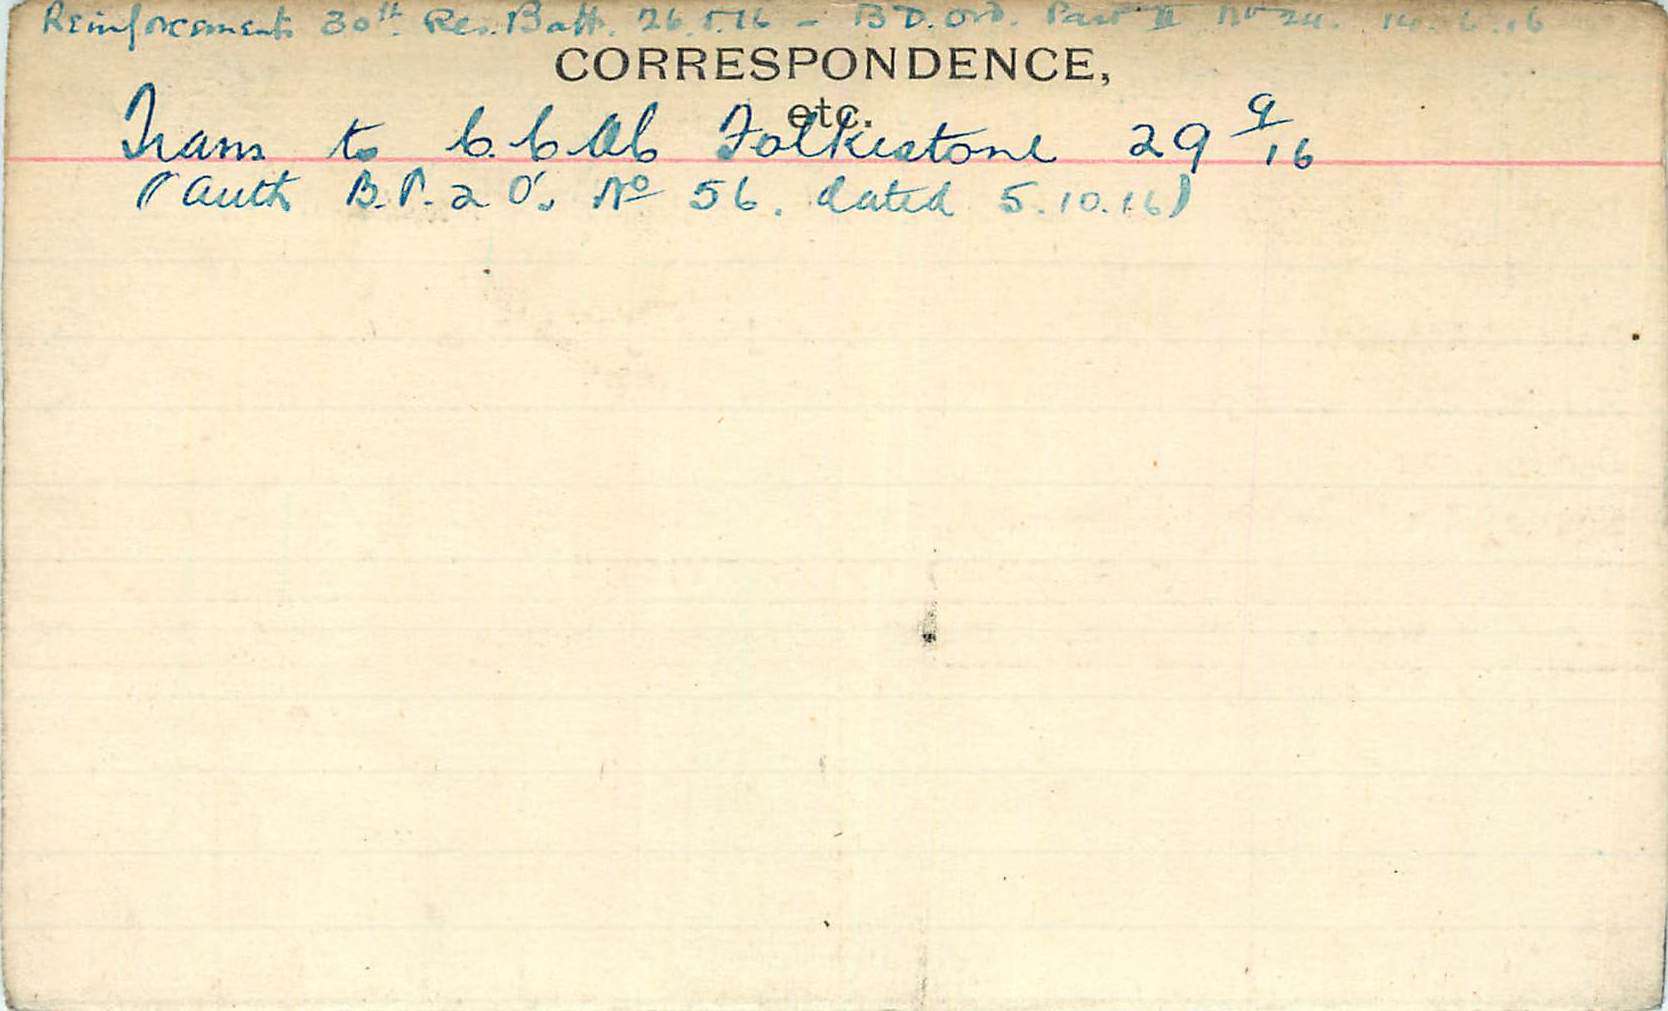 Reinforcements 30th Res. Batt. 26.5.16 – B D. Ord. Part II No 24. 14.6.16
CORRESPONDENCE,
etc.
Trans to C.C.A.C Folkestone 29 9/16
(Auth B.P. 2 O's No 56. dated 5.10.16)